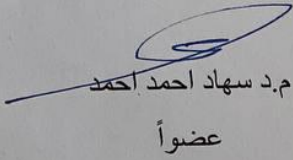 م.د سهاد احمد احمد
عضواً